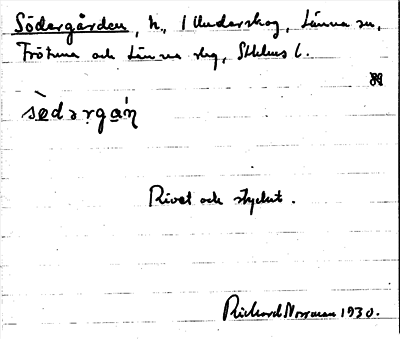 Södergården, h., 1 Underskog, Länna sn,
Frötuna och Länna slg, Sthlms l.
sø̀dərgáṇ
Rivet och styckat.
Richard Norrman 1930.